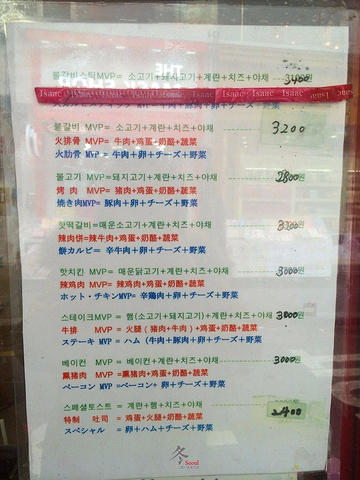 불갈비스틱MVP= 소고기+돼지고기+계란+치즈+야채
Isaac Isaac Isaac Isaac Isaac Isaac Isaac
불갈비 MVP= 소고기+계란+치즈+야채 3200
火排骨 MVP= 牛肉+鸡蛋+奶酪+蔬菜
火カルビ MVP = 牛肉+卵+チーズ+野菜
불고기 MVP=돼지고기+계란+치즈+야채 2800원
烤 肉 MVP= 猪肉+鸡蛋+奶酪+蔬菜
焼き肉MVP= 豚肉+卵+チーズ+野菜
핫떡갈비=매운소고기+계란+치즈+야채
辣肉饼=辣牛肉+鸡蛋+奶酪+蔬菜
餅カルビ= 辛牛肉+卵+チーズ+野菜
핫치킨 MVP= 매운닭고기+계란+치즈+야채 3000원
辣鸡肉 MVP= 辣鸡肉+鸡蛋+奶酪+蔬菜
ホット・チキンMVP= 辛鶏肉+卵+チーズ+野菜
스테이크MVP = 햄(소고기+돼지고기)+계란+치즈+야채 3000원
牛排 MVP= 火腿(猪肉+牛肉)+鸡蛋+奶酪+蔬菜
ステーキ MVP= ハム(牛肉+豚肉)+卵+チーズ+野菜
베이컨 MVP= 베이컨+계란+치즈+야채 3000원
熏猪肉 MVP=熏猪肉+鸡蛋+奶酪+蔬菜
ベーコン MVP=ベーコン+ 卵+チーズ+野菜
스페셜토스트 = 계란+햄+치즈+야채 2400
特制 吐司 = 鸡蛋+火腿+奶酪+蔬菜
スペシャル = 卵+ハム+チーズ+野菜
冬 Seoul